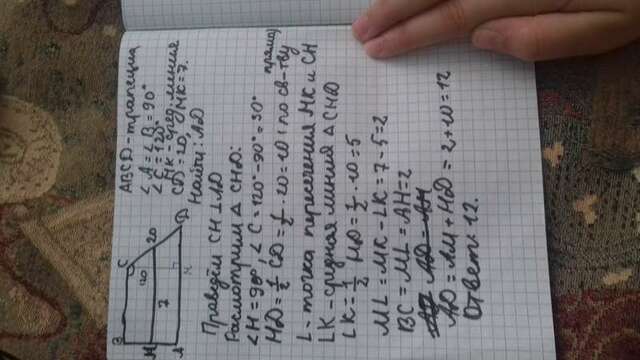 B C
120
M 7 20
A H D
ABCD - трапеция
∠A = ∠B = 90°
∠C = 120°
MK - сред. линия
CD = 20, MK = 7.
Найти: AD
Проведём CH ⊥ AD
Расмотрим △ CHD:
∠H = 90°, ∠C = 120° - 90° = 30°
HD = 1/2 CD = 1/2 · 20 = 10 (по св-тву прям.)
L - точка пересечения MK и CH
LK - средная линия △ CHD
LK = 1/2 HD = 1/2 · 10 = 5
ML = MK - LK = 7 - 5 = 2
BC = ML = AH = 2
AD = AH
AD = AM + HD = 2 + 10 = 12
Ответ: 12.